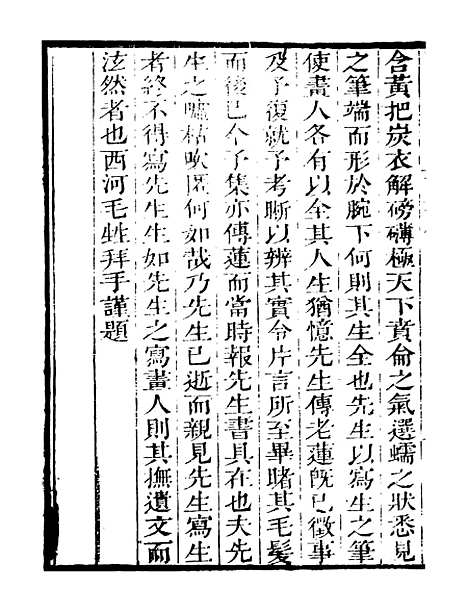 含黃把炭衣解磅礴極天下賁侖之氣選蠕之狀悉見
之筆端而形於腕下何則其生全也先生以寫生之筆
使畫人各有以全其人生猶憶先生傳老蓮旣已徵事
及予復就予考晰以辨其實令片言所至畢睹其毛髮
而後已今予集亦傳蓮而當時報先生書具在也夫先
生之噓枯吹匽何如哉乃先生已逝而親見先生寫生
者終不得寫先生生如先生之寫畫人則其撫遺文而
泫然者也西河毛甡拜手謹題